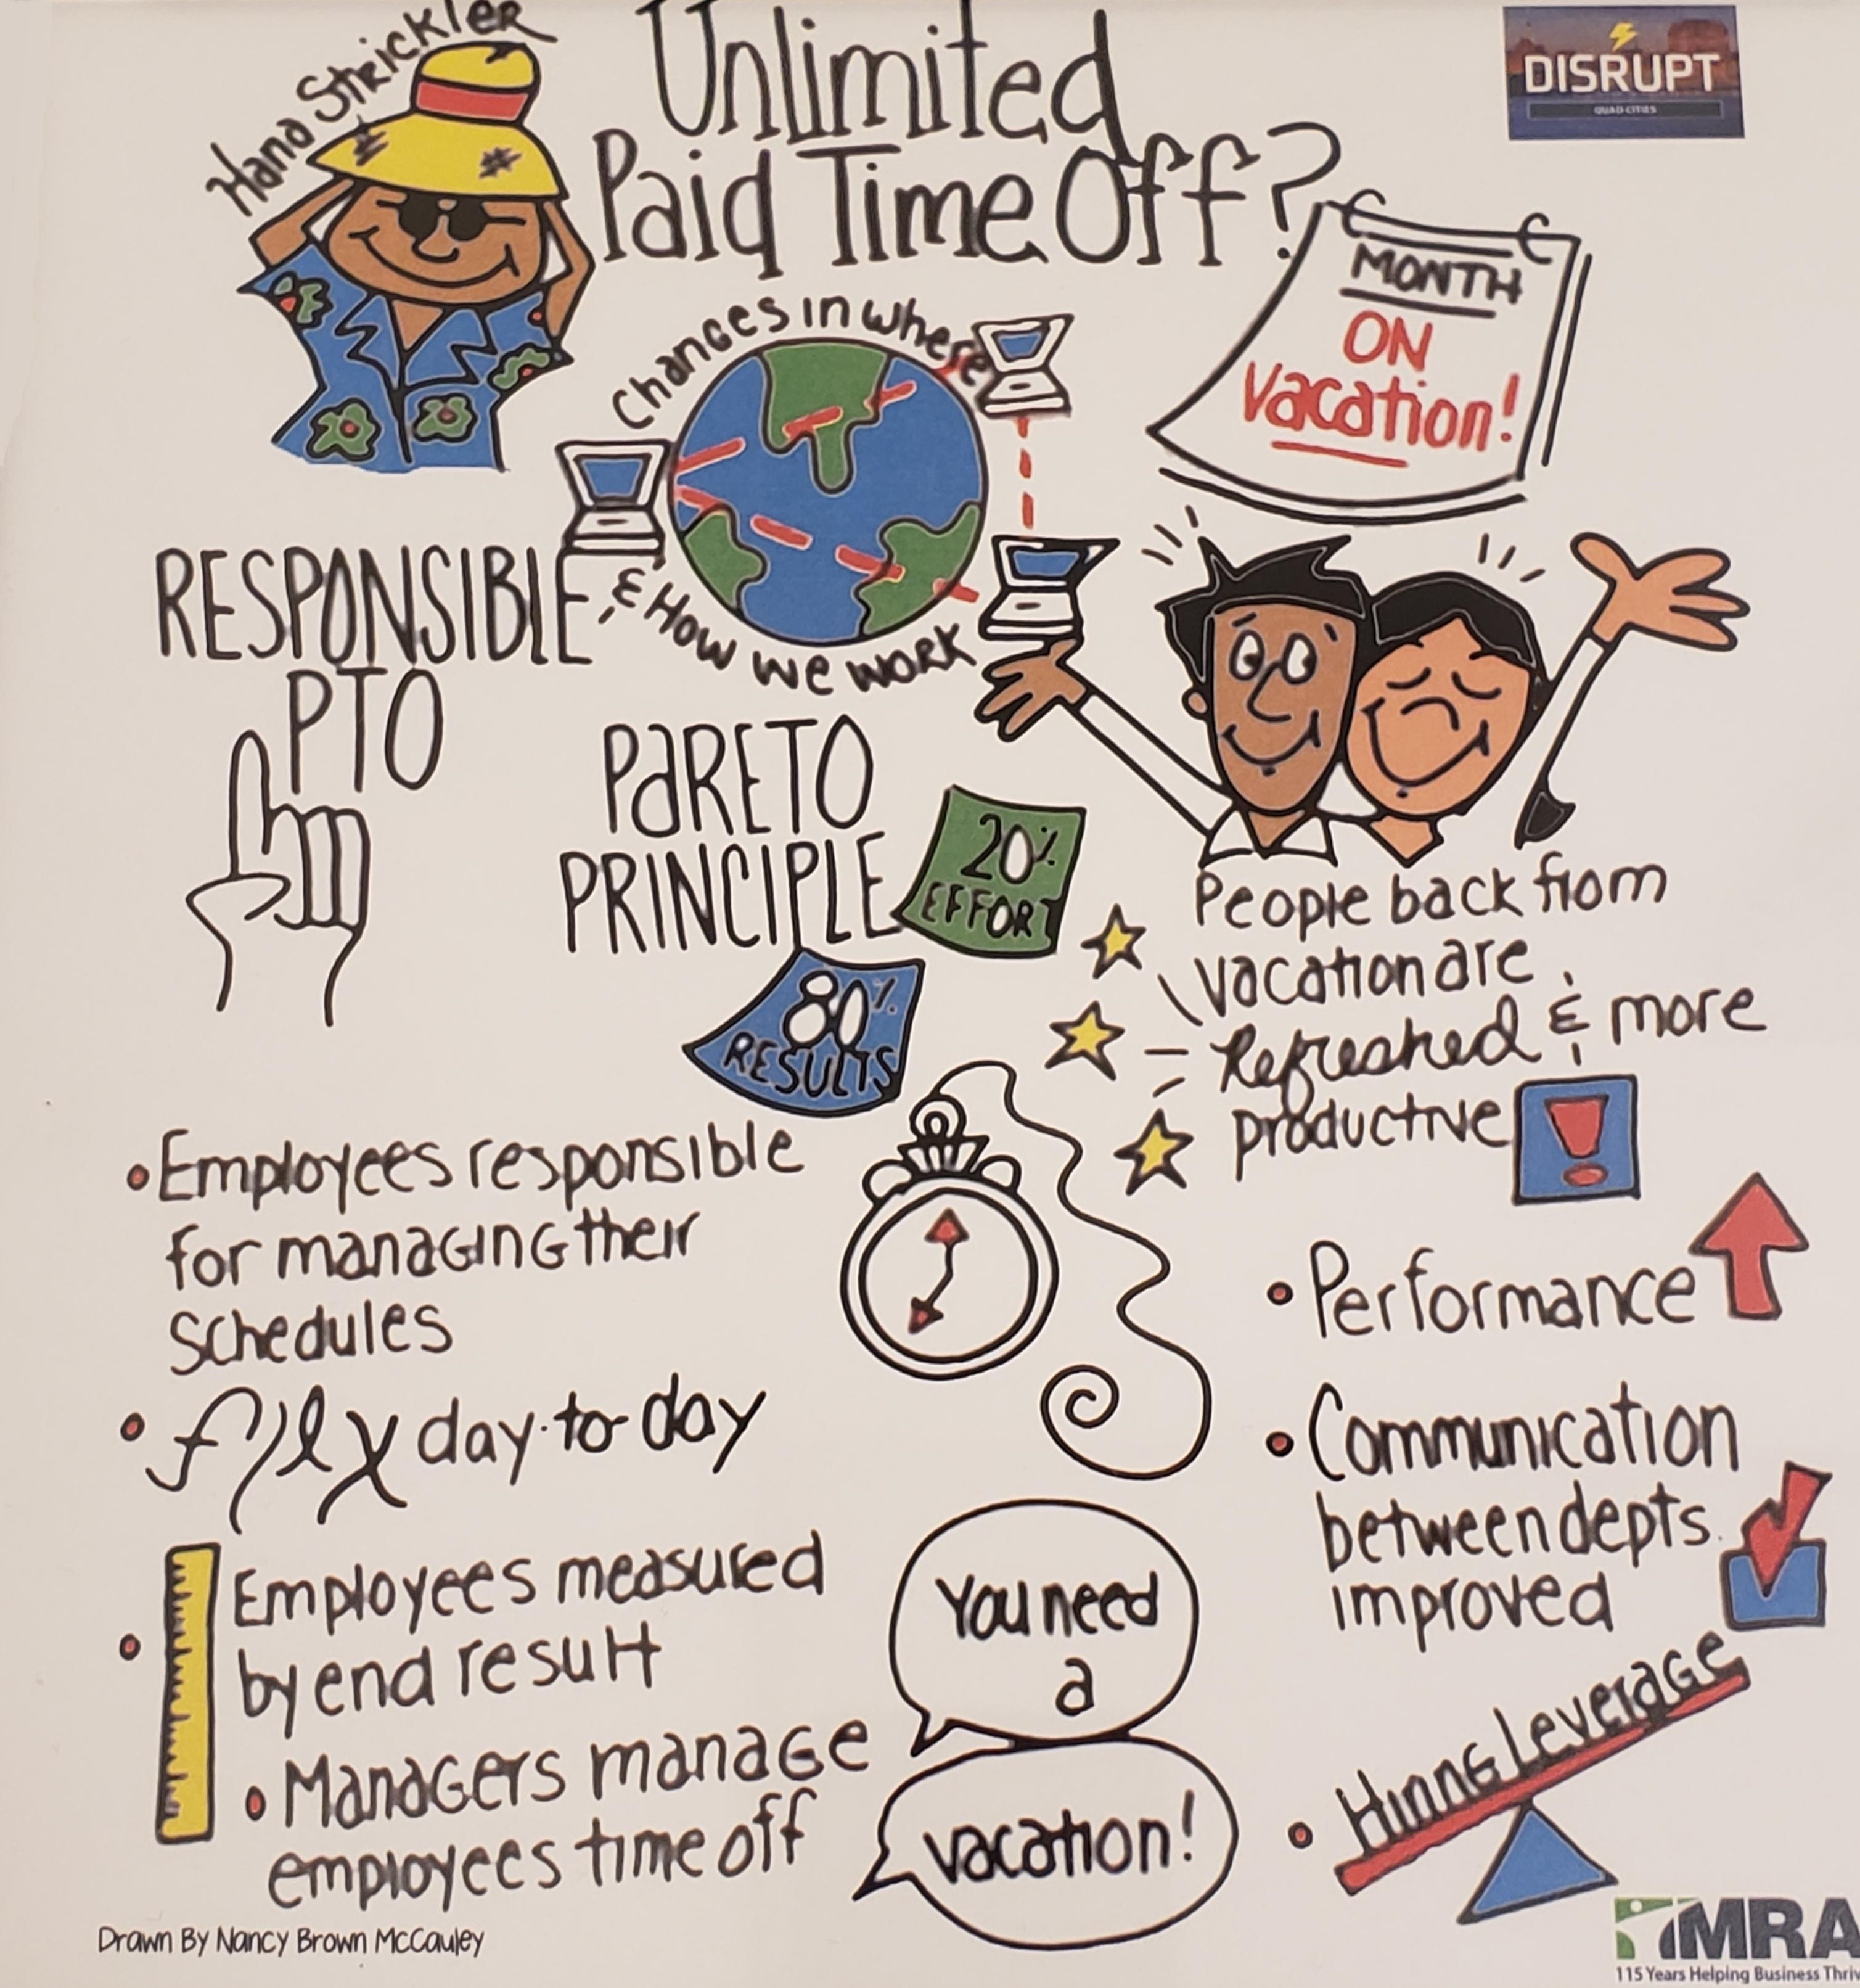 Hana Strickler
Unlimited
Paid Time Off?
DISRUPT
QUAD CITIES
MONTH
ON
Vacation!
Changes in where
& How we work
RESPONSIBLE
PTO
PARETO
PRINCIPLE
20%
EFFORT
80%
RESULTS
People back from
vacation are
Refreshed & more
productive !
• Employees responsible
for managing their
schedules
• flex day-to-day
• Employees measured
by end result
• Managers manage
employees time off
You need
a
vacation!
• Performance
• Communication
between depts.
improved
• Hiring Leverage
Drawn By Nancy Brown McCauley
MRA
115 Years Helping Business Thriv